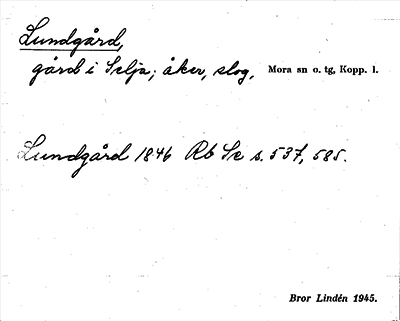 Lundgård,
gård i Selja; åker, slog, Mora sn o. tg, Kopp. l.
Lundgård 1846 Rb Se s. 537, 585.
Bror Lindén 1945.